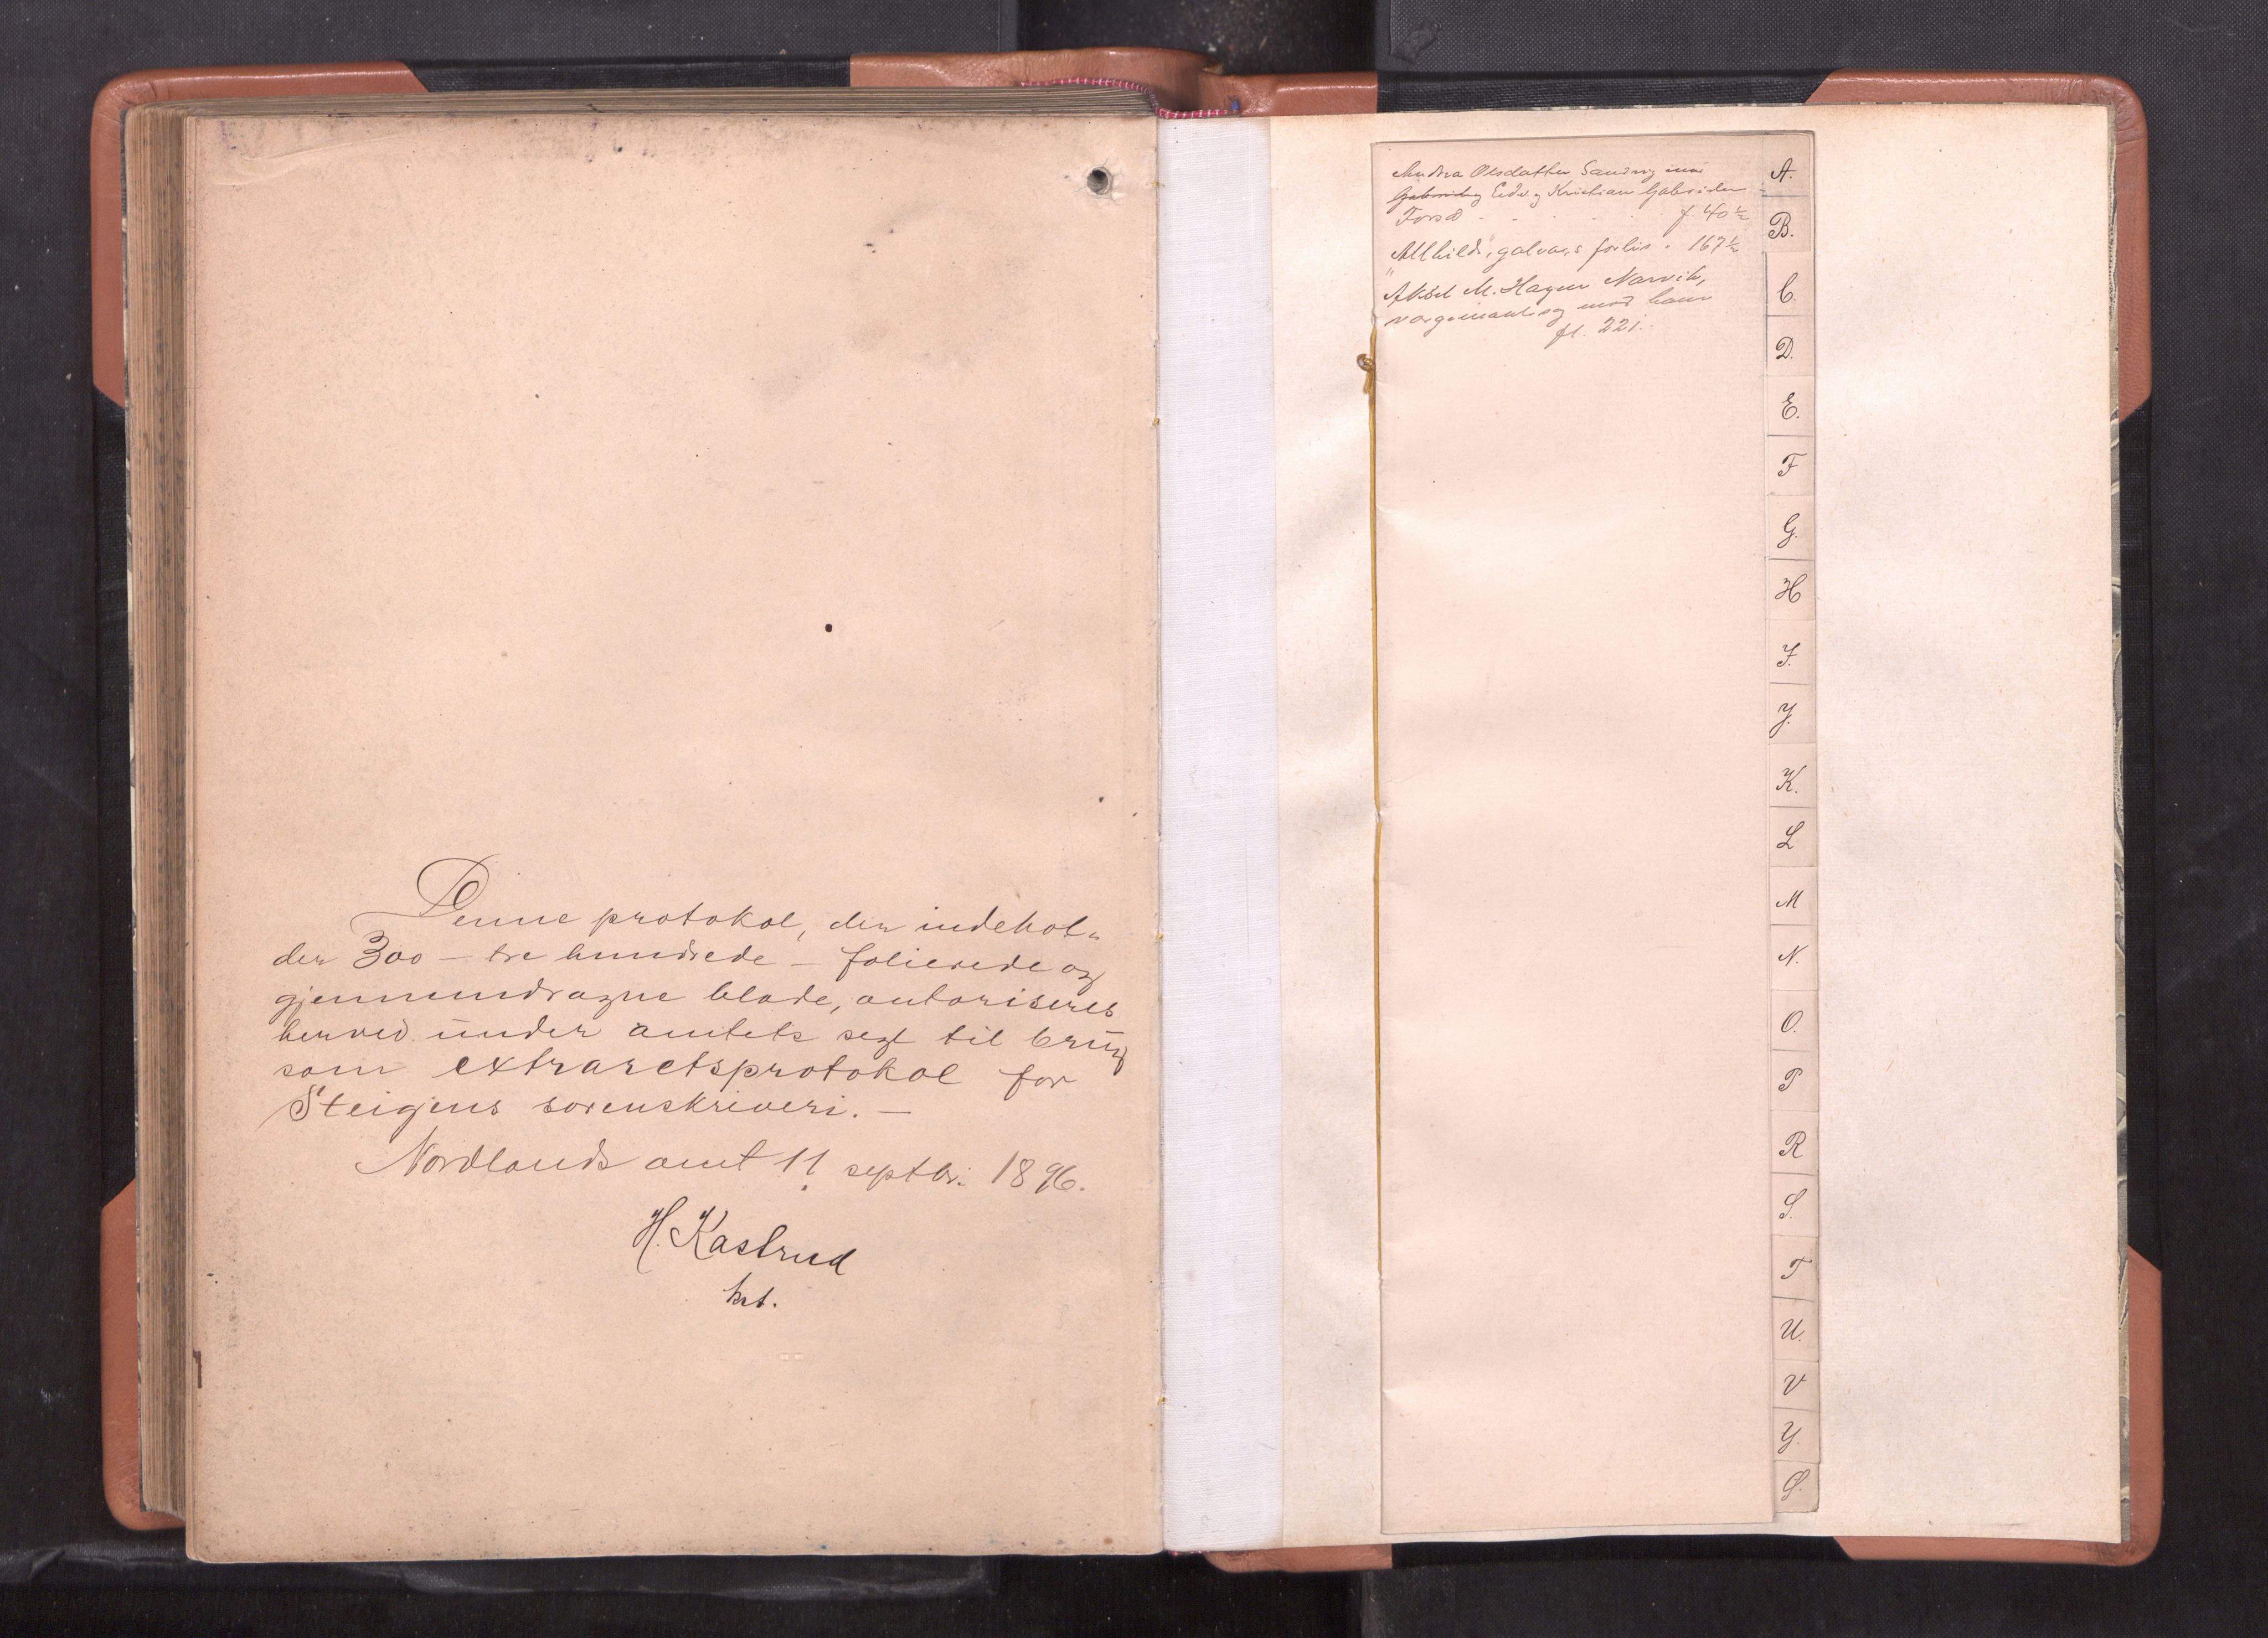 Denne protokol, der indehol-
der 300 – tre hundrede – folierede og
gjennemdragne blade, autoriseres
herved under amtets segl til brug
som extraretsprotokol for
Steigens sorenskriveri. –
Nordlands amt 11 septbr. 1896.
H. Kastrud
kst.
Andrea Olsdatter mod
Kristian Gabrielsen
f. 40 ½
"Alfhild", galeas, s forlis. 167 ½
Aksel M. Hagen Narvik,
mod ham
fl. 221.
A.
B.
C.
D.
E.
F
G.
H
I.
J.
K.
L
M
N.
O.
P
R
S.
T
U.
V
Y.